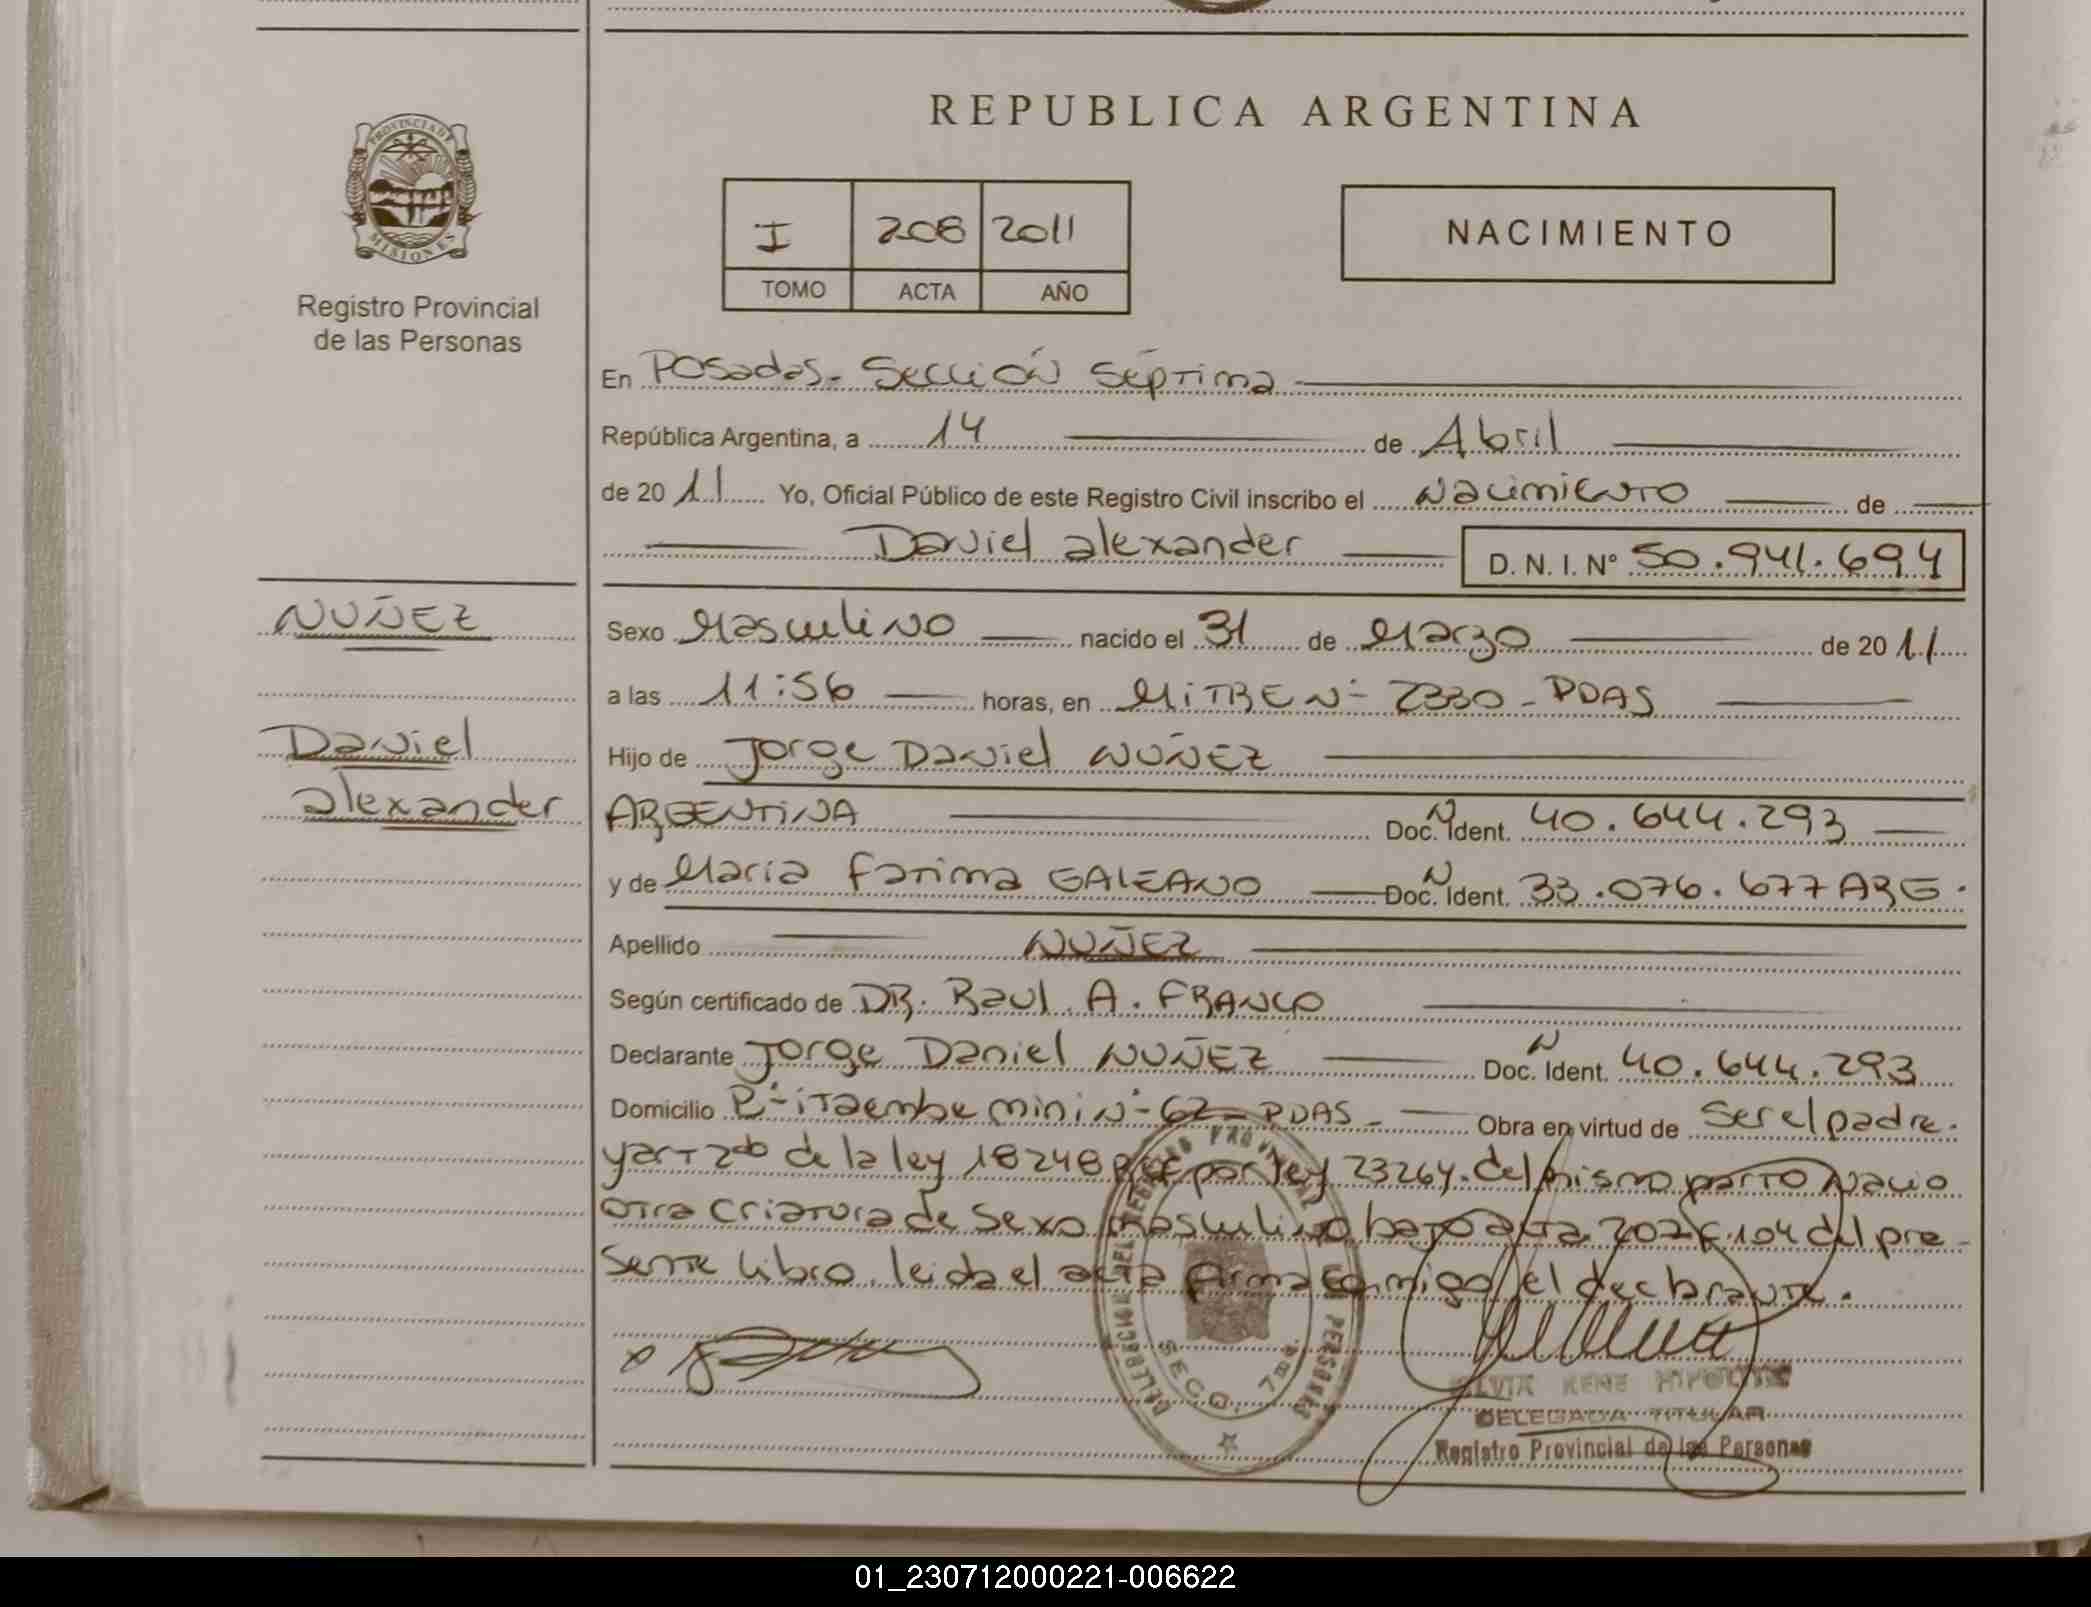 REPUBLICA ARGENTINA
PROVINCIA DE
MISIONES
Registro Provincial
de las Personas
I 208 2011
TOMO ACTA AÑO
NACIMIENTO
En Posadas - Sección Séptima
República Argentina, a 14 de Abril
de 2011 Yo, Oficial Público de este Registro Civil inscribo el Nacimiento de
Daniel alexander D. N. I. Nº 50.941.694
NUÑEZ
Daniel
alexander
Sexo Masculino nacido el 31 de Marzo de 2011
a las 11:56 horas, en MITRE Nº 2330 - PDAS
Hijo de Jorge Daniel NUÑEZ
ARGENTINA Doc. N Ident. 40.644.293
y de Maria Fatima GALEANO Doc. N Ident. 33.076.677 ARG.
Apellido NUÑEZ
Según certificado de DR. Raul A. FRANCO
Declarante Jorge Daniel NUÑEZ Doc. N Ident. 40.644.293
Domicilio Bº itaembe mini Nº 62 - PDAS - Obra en virtud de Ser el padre.
y art 2do de la ley 18248 por ley 23264. del mismo parto Nacio
otra criatura de Sexo masculino bajo acta 207 F. 104 del pre-
sente libro. leida el acta firma conmigo el declarante.
SECC. 7ma.
RENE HIPOLITO
DELEGADA TITULAR
Registro Provincial de las Personas
01_230712000221-006622